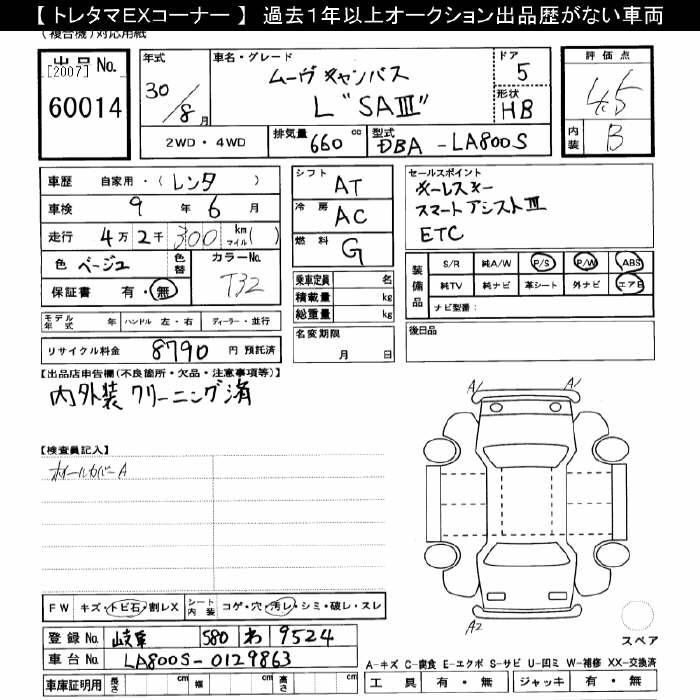 【 トレタマEXコーナー 】 過去1年以上オークション出品歴がない車両
(複合機) 対応用紙
出品 No.
[2007]
60014
年式
30/8月
車名・グレード
ムーヴ キャンバス
L "SAⅢ"
ドア
5
形状
HB
評価点
4.5
内装
B
2WD・4WD
排気量
660 cc
型式
DBA - LA800S
車歴 自家用・( レンタ )
車検 9 年 6 月
走行 4万 2千 300 km マイル( )
色 ベージュ 色替
カラーNo.
T32
保証書 有・無
シフト AT
冷房 AC
燃料 G
乗車定員 名
積載量 kg
総重量 kg
名変期限
月 日
セールスポイント
キーレスキー
スマートアシストⅢ
ETC
装備品
S/R 純A/W P/S P/W ABS
純TV 純ナビ 革シート 外ナビ エアB
ナビ型番:
後日品
モデル年式 年 ハンドル 左・右 ディーラー・並行
リサイクル料金 8790 円 預託済
【出品店申告欄(不良箇所・欠品・注意事項等)】
内外装 クリーニング済
【検査員記入】
ホイールカバーA
A1 A1
A2
FW キズ・トビ石・割レX シート内装 コゲ・穴・汚レ・シミ・破レ・スレ
スペア
登録 No. 岐阜 580 わ 9524
車台 No. LA800S-0129863
A-キズ C-腐食 E-エクボ S-サビ U-凹ミ W-補修 XX-交換済
車庫証明用 長さ cm 幅 cm 高さ cm
工具 有・無 ジャッキ 有・無